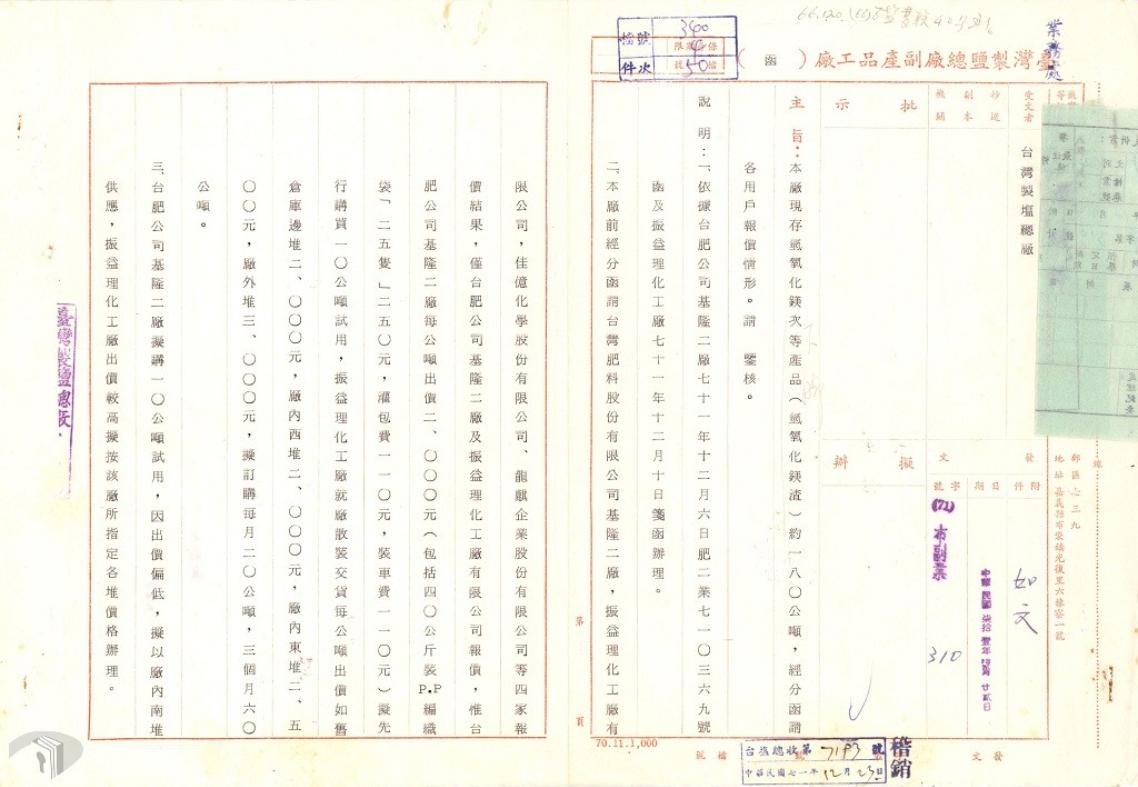 臺灣製鹽總廠副產品工廠（函）
業務處
檔號
件次
340
4
50
受文者
台灣製塩總廠
抄送
副本
機關
批示
擬辦
發文
附件
日期
字號
如文
中華民國柒拾壹年 廿貳日
(71)布副業
310
主旨：本廠現存氫氧化鎂次等產品（氫氧化鎂渣）約一八〇公噸，經分函請
各用戶報價情形。請　鑒核。
說明：一、依據台肥公司基隆二廠七十一年十二月六日肥二業七一〇三六九號
函及振益理化工廠七十一年十二月十日箋函辦理。
二、本廠前經分函請台灣肥料股份有限公司基隆二廠，振益理化工廠有
限公司，佳億化學股份有限公司、龍麒企業股份有限公司等四家報
價結果，僅台肥公司基隆二廠及振益理化工廠有限公司報價，惟台
肥公司基隆二廠每公噸出價二、〇〇〇元（包括四〇公斤裝P.P編織
袋「二五隻」二五〇元，灌包費一一〇元，裝車費一一〇元）擬先
行購買一〇公噸試用，振益理化工廠就廠散裝交貨每公噸出價如舊
倉庫邊堆二、〇〇〇元，廠內西堆二、〇〇〇元，廠內東堆二、五
〇〇元，廠外堆三、〇〇〇元，擬訂購每月二〇公噸，三個月六〇
公噸。
三、台肥公司基隆二廠擬購一〇公噸試用，因出價偏低，擬以廠內南堆
供應，振益理化工廠出價較高擬按該廠所指定各堆價格辦理。
臺灣製鹽總廠
第
頁
70.11.1,000
郵區七三九
地址嘉義縣布袋鎮光復里六棟寮一號
線
台塩總收第7193號
中華民國七一年12月23日
楷銷
發文
檔號